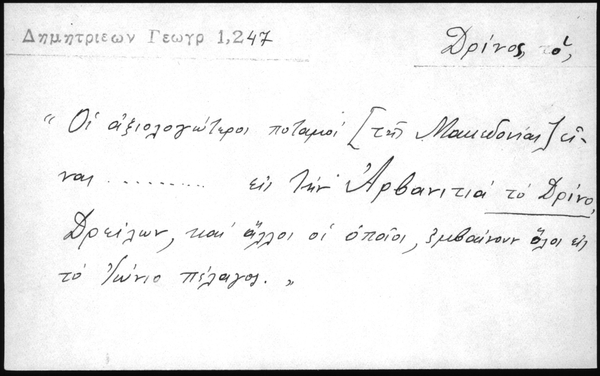 Δημητριεων Γεωγρ 1,247
Δρίνος, τό,
“ Οἱ ἀξιολογώτεροι ποταμοί [τῆς Μακεδονίας] εἶ-
ναι ......... εἰς τὴν Ἀρβανιτιά τὸ Δρίνο,
Δρείλων, καὶ ἄλλοι οἱ ὁποῖοι, ἐμβαίνουν ὅλοι εἰς
τὸ Ἰώνιο πέλαγος. „